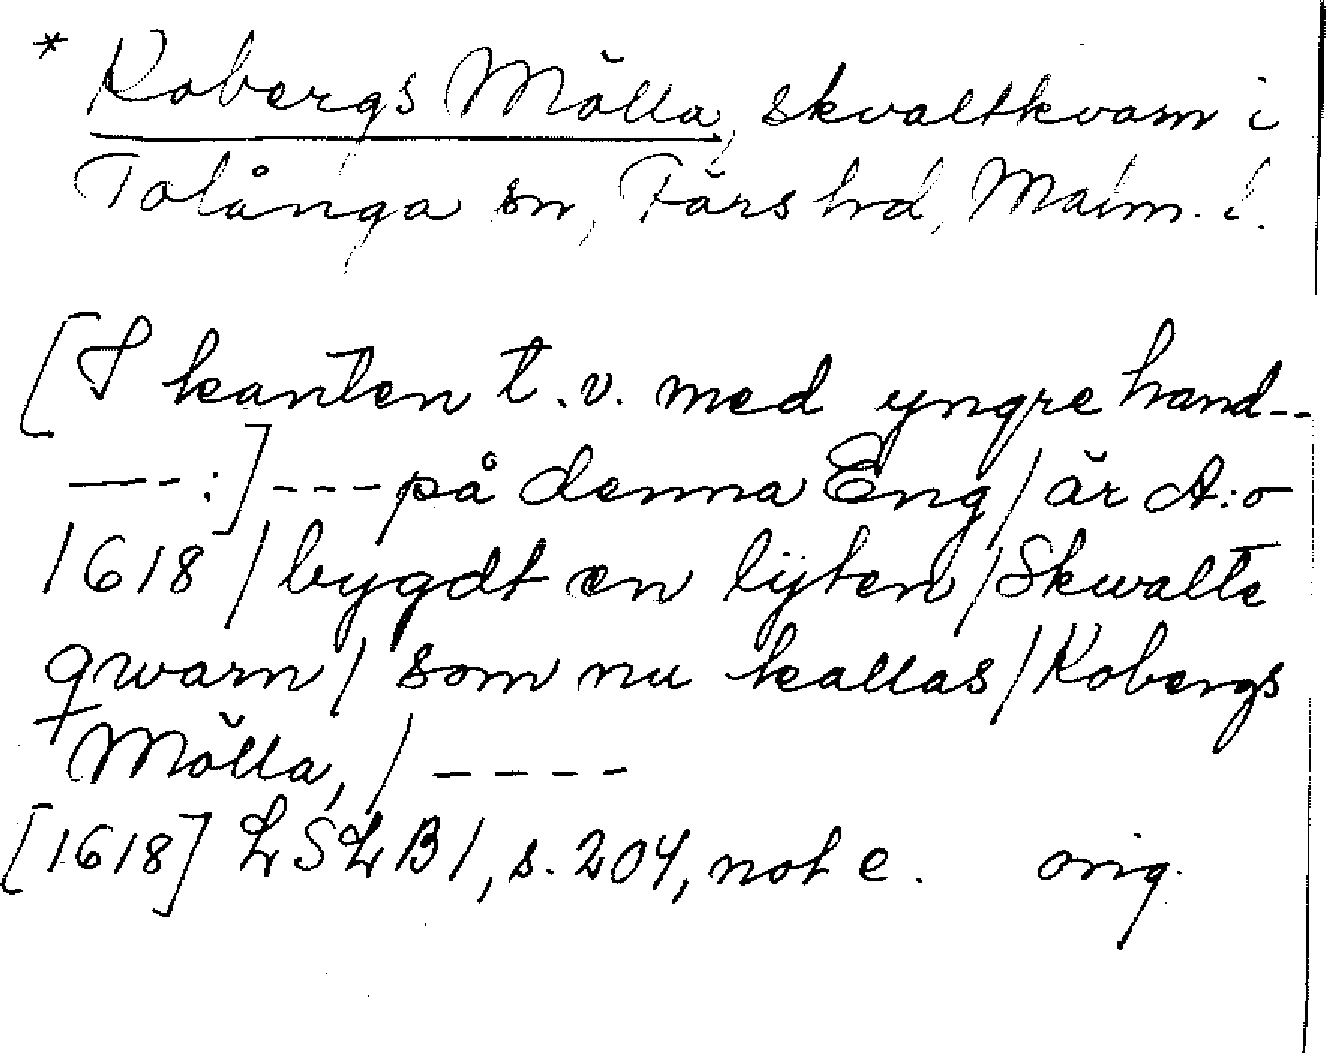 * Kobergs Mölla, skvaltkvarn i
Tolånga sn, Färs hd, Malm. l.
[I kanten t.v. med yngre hand--
---:]---på denna Eng/är A:o
1618/bygdt en lijten/Skwalte
qwarn/som nu kallas/Kobergs
Mölla,/----
[1618] LSLB1, s. 204, not e. orig.